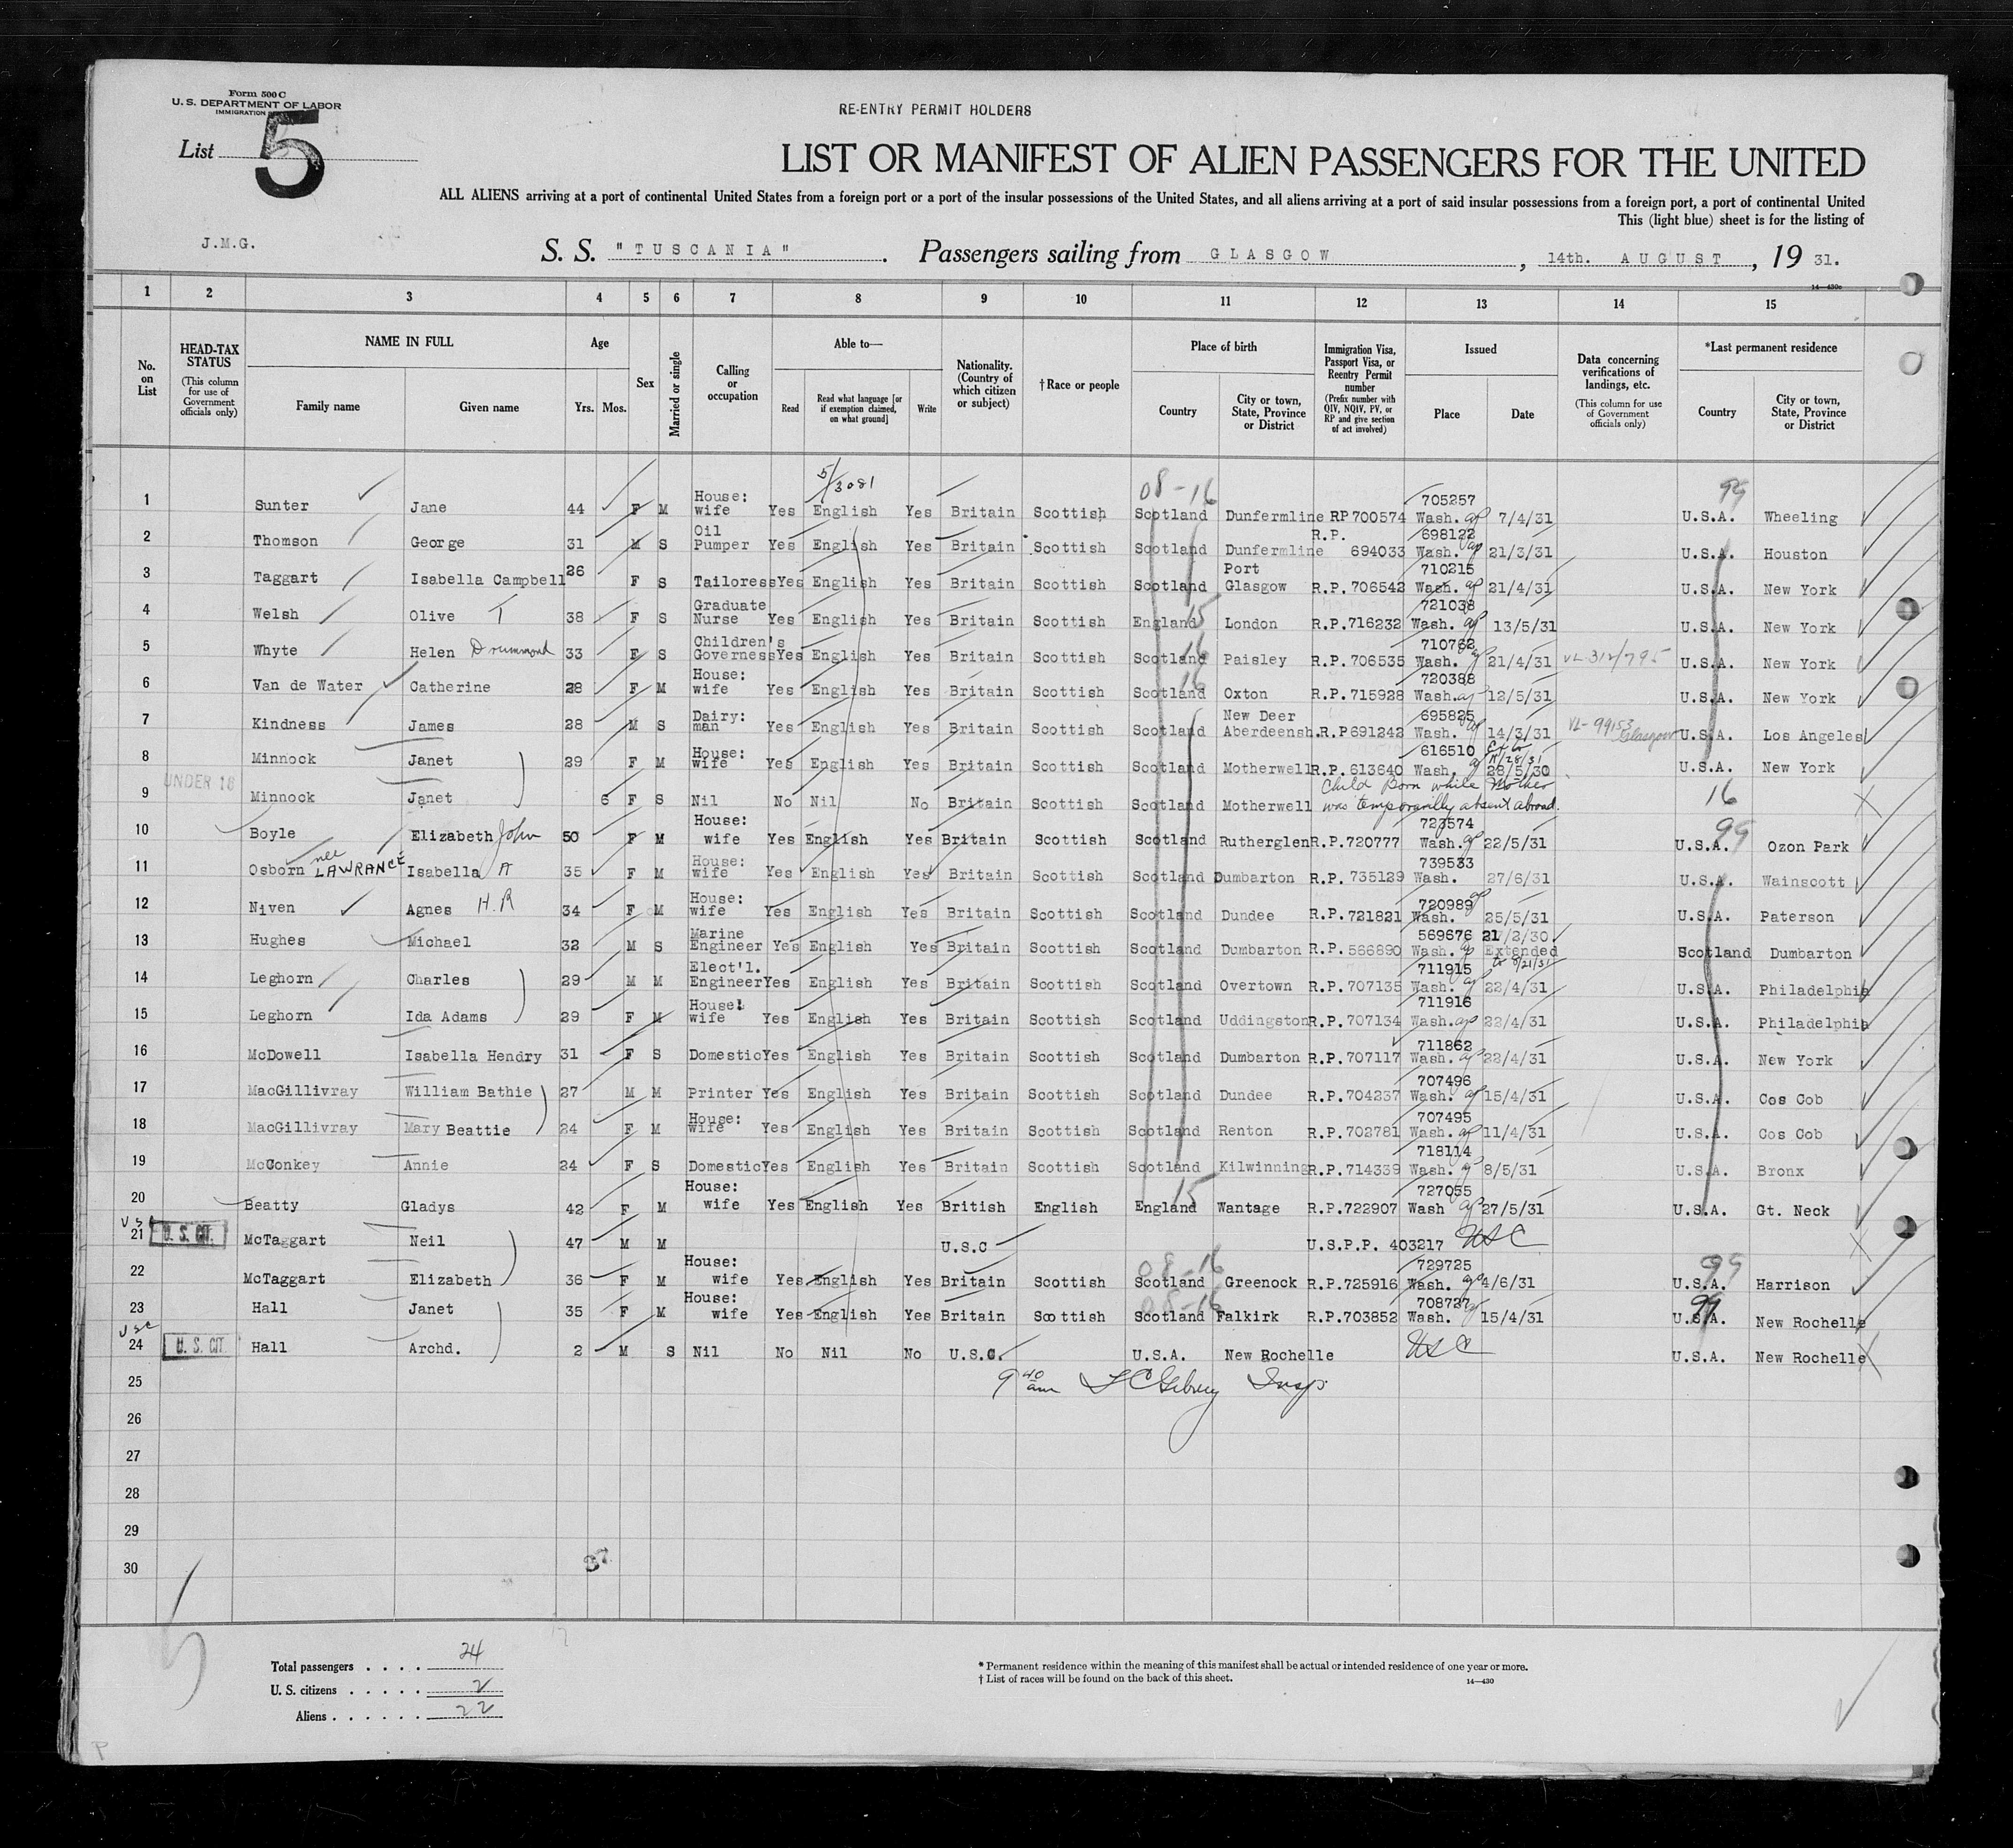 Form 500 C
U. S. DEPARTMENT OF LABOR
IMMIGRATION
List 5
RE-ENTRY PERMIT HOLDERS
LIST OR MANIFEST OF ALIEN PASSENGERS FOR THE UNITED
ALL ALIENS arriving at a port of continental United States from a foreign port or a port of the insular possessions of the United States, and all aliens arriving at a port of said insular possessions from a foreign port, a port of continental United
This (light blue) sheet is for the listing of
J.M.G.
S. S. "TUSCANIA". Passengers sailing from GLASGOW, 14th. AUGUST, 19 31.
14—430c
1 2 3 4 5 6 7 8 9 10 11 12 13 14 15
No. on List
HEAD-TAX STATUS (This column for use of Government officials only)
NAME IN FULL Family name Given name
Age Yrs. Mos.
Sex
Married or single
Calling or occupation
Able to— Read Read what language [or if exemption claimed, on what ground] Write
Nationality. (Country of which citizen or subject)
† Race or people
Place of birth Country City or town, State, Province or District
Immigration Visa, Passport Visa, or Reentry Permit number (Prefix number with QIV, NQIV, PV, or RP and give section of act involved)
Issued Place Date
Data concerning verifications of landings, etc. (This column for use of Government officials only)
*Last permanent residence Country City or town, State, Province or District
5/3081 08-16 99
1 Sunter Jane 44 F M House: wife Yes English Yes Britain Scottish Scotland Dunfermline RP 700574 705257 Wash. 7/4/31 U.S.A. Wheeling
2 Thomson George 31 M S Oil Pumper Yes English Yes Britain Scottish Scotland Dunfermline R.P. 694033 698122 Wash. 21/3/31 U.S.A. Houston
3 Taggart Isabella Campbell 26 F S Tailoress Yes English Yes Britain Scottish Scotland Port Glasgow R.P. 706542 710215 Wash. 21/4/31 U.S.A. New York
4 Welsh Olive T 38 F S Graduate Nurse Yes English Yes Britain Scottish England 15 London R.P. 716232 721038 Wash. 13/5/31 U.S.A. New York
5 Whyte Helen Drummond 33 F S Children's Governess Yes English Yes Britain Scottish Scotland 16 Paisley R.P. 706535 710762 Wash. 21/4/31 VL 312/795 U.S.A. New York
6 Van de Water Catherine 28 F M House: wife Yes English Yes Britain Scottish Scotland 16 Oxton R.P. 715928 720388 Wash. 12/5/31 U.S.A. New York
7 Kindness James 28 M S Dairy: man Yes English Yes Britain Scottish Scotland New Deer Aberdeensh. R.P 691242 695825 Wash. 14/3/31 VL-99153 Glasgow U.S.A. Los Angeles
8 Minnock Janet 29 F M House: wife Yes English Yes Britain Scottish Scotland Motherwell R.P. 613640 616510 Wash. 28/5/30 U.S.A. New York
UNDER 16
9 Minnock Janet 6 F S Nil No Nil No Britain Scottish Scotland Motherwell Child Born while Mother was temporarily absent abroad. 16
10 Boyle Elizabeth John 50 F M House: wife Yes English Yes Britain Scottish Scotland Rutherglen R.P. 720777 723574 Wash. 22/5/31 99 U.S.A. Ozon Park
11 Osborn nee LAWRANCE Isabella A 35 F M House: wife Yes English Yes Britain Scottish Scotland Dumbarton R.P. 735129 739533 Wash. 27/6/31 U.S.A. Wainscott
12 Niven Agnes H.R 34 F M House: wife Yes English Yes Britain Scottish Scotland Dundee R.P. 721821 720989 Wash. 25/5/31 U.S.A. Paterson
13 Hughes Michael 32 M S Marine Engineer Yes English Yes Britain Scottish Scotland Dumbarton R.P. 566890 569676 Wash. 21/2/30 Extended to 8/21/31 Scotland Dumbarton
14 Leghorn Charles 29 M M Elect'l. Engineer Yes English Yes Britain Scottish Scotland Overtown R.P. 707135 711915 Wash. 22/4/31 U.S.A. Philadelphia
15 Leghorn Ida Adams 29 F M House: wife Yes English Yes Britain Scottish Scotland Uddingston R.P. 707134 711916 Wash. 22/4/31 U.S.A. Philadelphia
16 McDowell Isabella Hendry 31 F S Domestic Yes English Yes Britain Scottish Scotland Dumbarton R.P. 707117 711862 Wash. 22/4/31 U.S.A. New York
17 MacGillivray William Bathie 27 M M Printer Yes English Yes Britain Scottish Scotland Dundee R.P. 704237 707496 Wash. 15/4/31 U.S.A. Cos Cob
18 MacGillivray Mary Beattie 24 F M House: wife Yes English Yes Britain Scottish Scotland Renton R.P. 702781 707495 Wash. 11/4/31 U.S.A. Cos Cob
19 McConkey Annie 24 F S Domestic Yes English Yes Britain Scottish Scotland Kilwinning R.P. 714339 718114 Wash. 8/5/31 U.S.A. Bronx
20 Beatty Gladys 42 F M House: wife Yes English Yes British English England 15 Wantage R.P. 722907 727055 Wash 27/5/31 U.S.A. Gt. Neck
21 U. S. CIT. McTaggart Neil 47 M M U.S.C U.S.P.P. 403217 USC
22 McTaggart Elizabeth 36 F M House: wife Yes English Yes Britain Scottish 08-16 Scotland Greenock R.P. 725916 729725 Wash. 4/6/31 99 U.S.A. Harrison
23 Hall Janet 35 F M House: wife Yes English Yes Britain Scottish 08-16 Scotland Falkirk R.P. 703852 708727 Wash. 15/4/31 99 U.S.A. New Rochelle
usc
24 U. S. CIT Hall Archd. 2 M S Nil No Nil No U.S.C. U.S.A. New Rochelle USC U.S.A. New Rochelle
25 9 40 am Insp.
26
27
28
29
30
Total passengers . . . . 24
U. S. citizens . . . . . 2
Aliens . . . . . . 22
* Permanent residence within the meaning of this manifest shall be actual or intended residence of one year or more.
† List of races will be found on the back of this sheet.
14—430
P